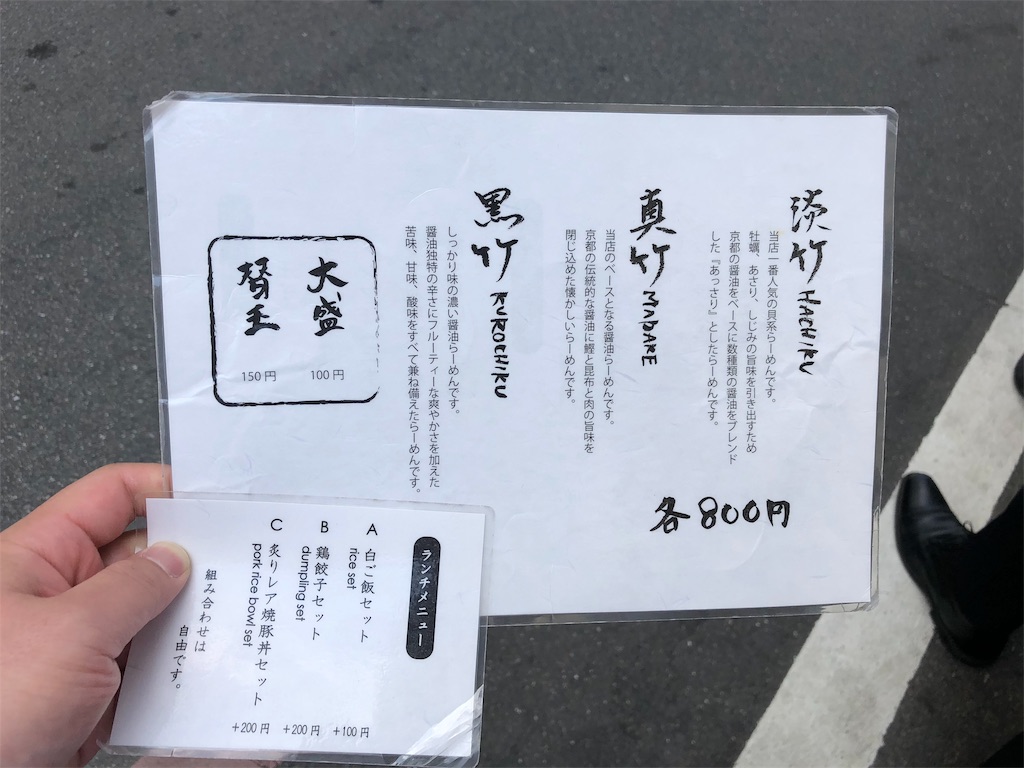 淡竹 HACHIKU
当店一番人気の貝系らーめんです。
牡蠣、あさり、しじみの旨味を引き出すため
京都の醤油をベースに数種類の醤油をブレンド
した『あっさり』としたらーめんです。
真竹 MADAKE
当店のベースとなる醤油らーめんです。
京都の伝統的な醤油に鰹と昆布と肉の旨味を
閉じ込めた懐かしいらーめんです。
各800円
黒竹 KUROCHIKU
しっかり味の濃い醤油らーめんです。
醤油独特の辛さにフルーティーな爽やかさを加えた
苦味、甘味、酸味をすべて兼ね備えたらーめんです。
大盛
100円
替玉
150円
ランチメニュー
A 白ご飯セット
rice set
+100円
B 鶏餃子セット
dumpling set
+200円
C 炙りレア焼豚丼セット
pork rice bowl set
+200円
組み合わせは
自由です。